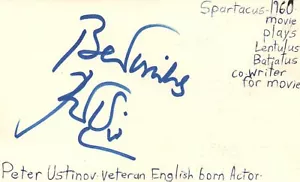 Spartacus-1960
movie
plays
Lentulus
Batiatus
co writer
for movie
Peter Ustinov veteran English born Actor.